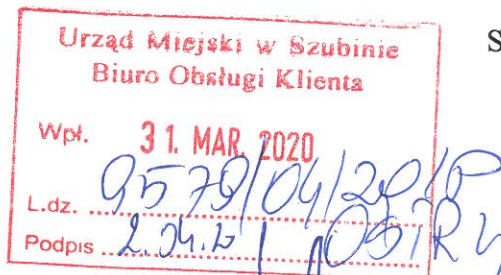 Urząd Miejski w Szubinie
Biuro Obsługi Klienta
Wpł. 31. MAR. 2020
L.dz. 9579/04/20/P
Podpis 2.04.20
S